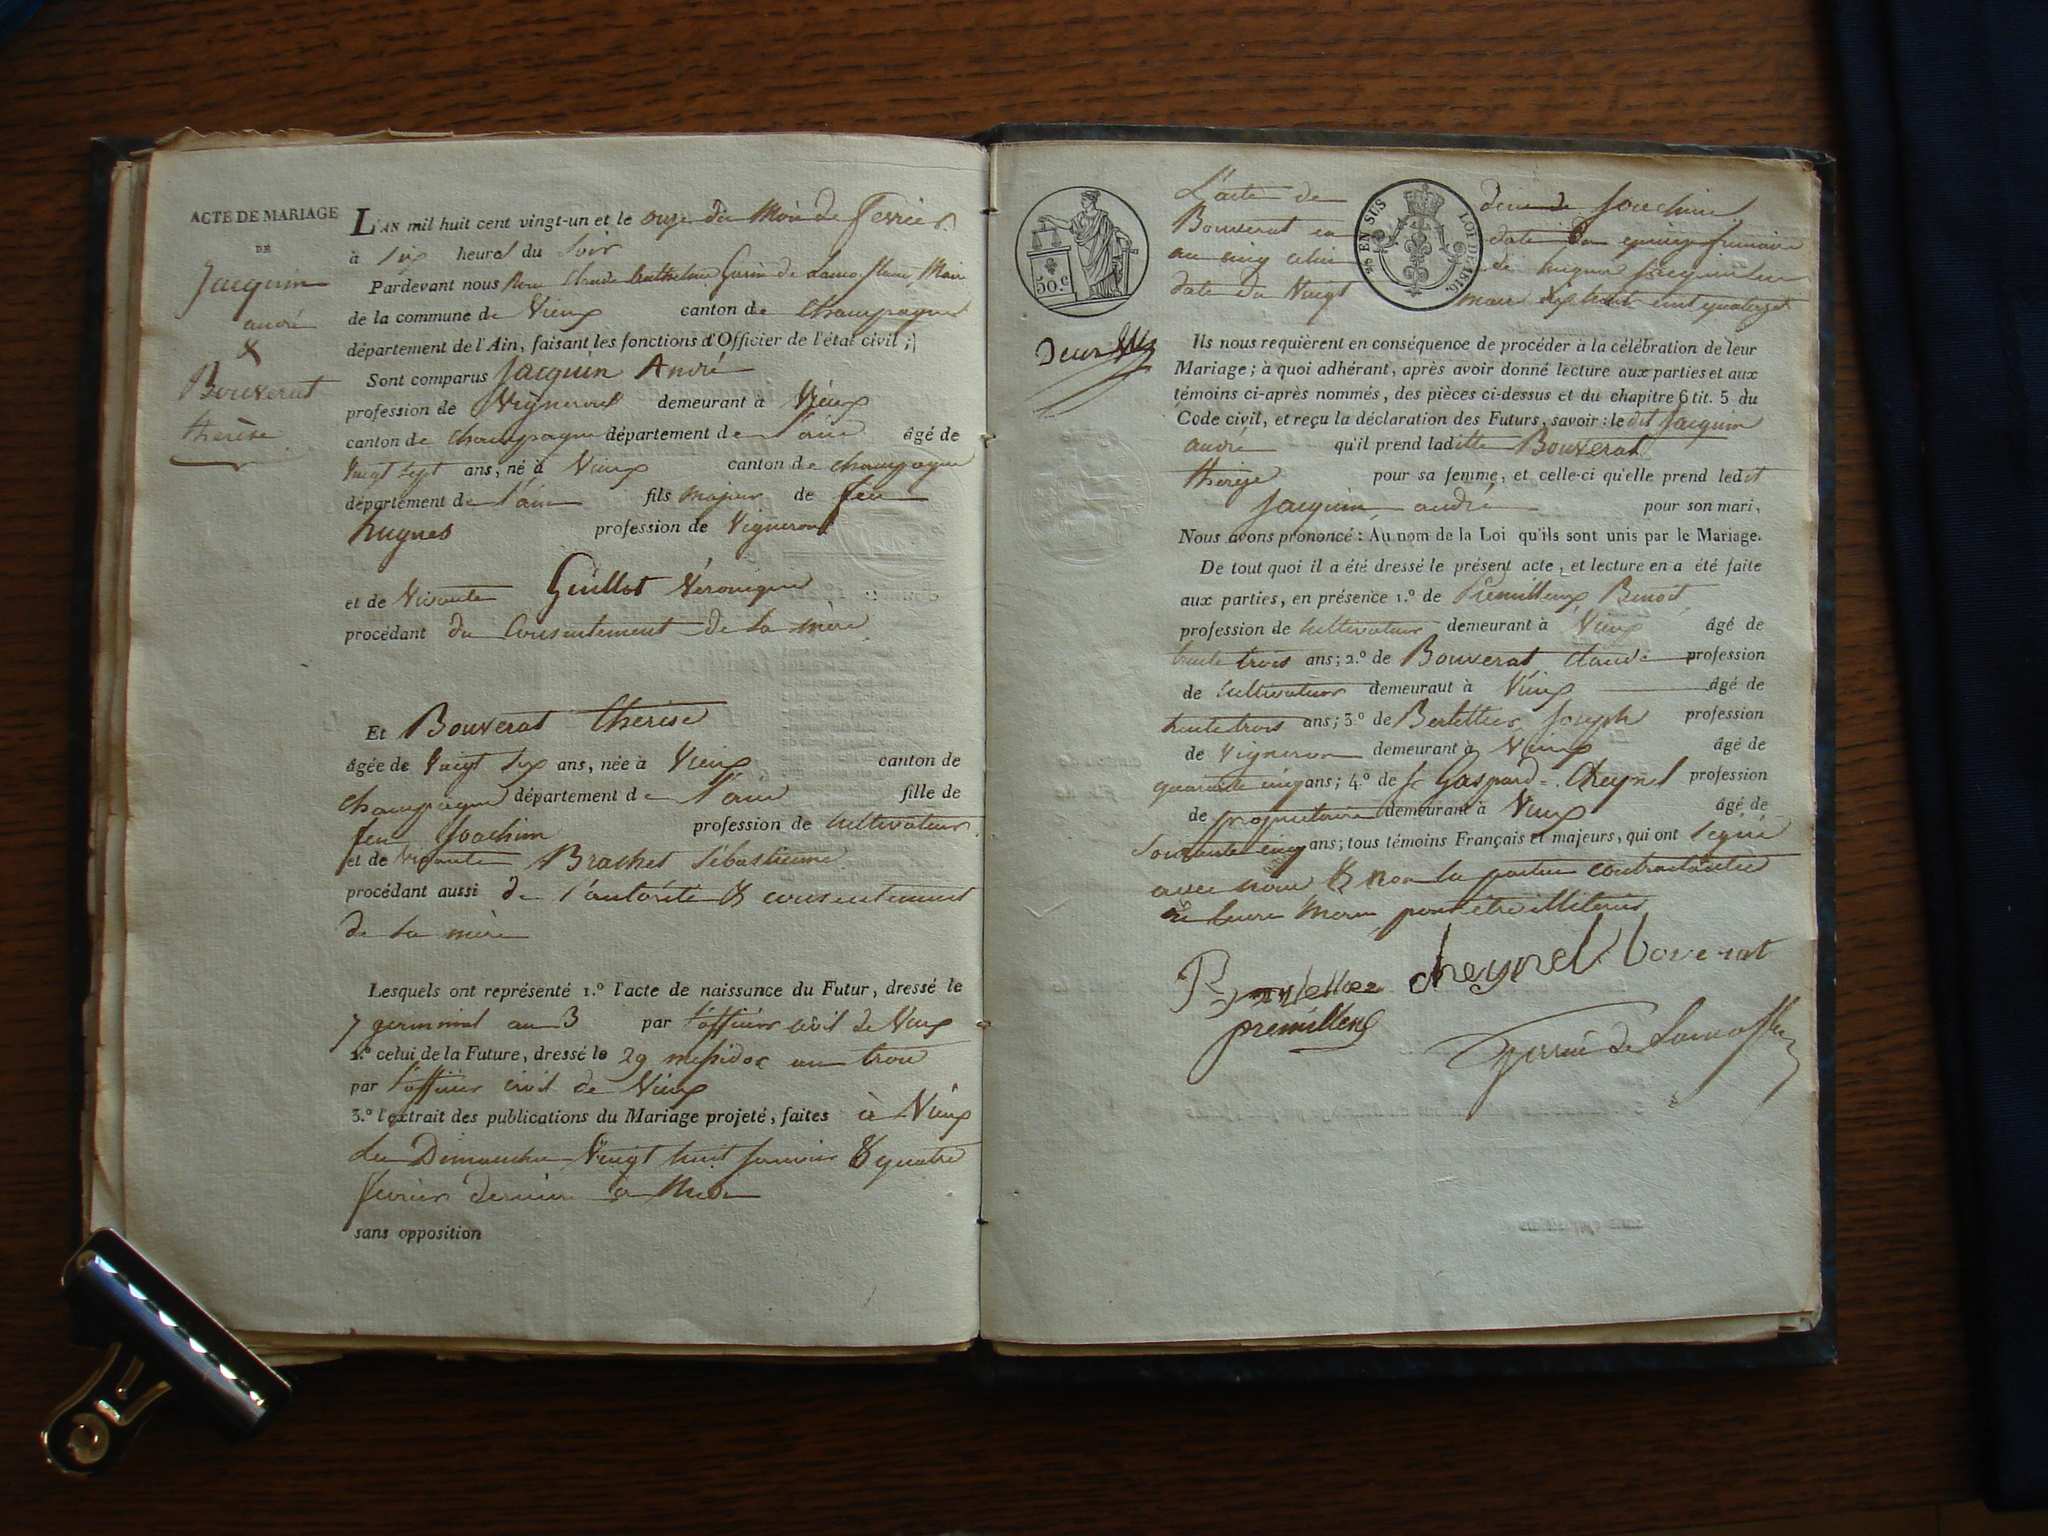 ACTE DE MARIAGE
DE
Jacquin
andré
&
Bouverat
thérèse
L'AN mil huit cent vingt-un et le onze du Mois de fevrier
à six heures du soir
Pardevant nous Claude De Maire
de la commune de Vieux canton de Champagne
département de l'Ain, faisant les fonctions d'Officier de l'état civil ;
Sont comparus Jacquin André
profession de Vigneron demeurant à Vieux
canton de champagne département de l'ain âgé de
Vingt sept ans, né à Vieux canton de champagne
département de l'ain fils majeur de feu
hugues profession de Vigneron
et de Vivante Guillot Véronique
procédant du Consentement de sa mère
Et Bouverat thérèse
âgée de Vingt six ans, née à Vieux canton de
champagne département de l'ain fille de
feu Joachim profession de cultivateur
et de vivante Brachet sébastienne
procédant aussi de l'autorité & consentement
de sa mère
Lesquels ont représenté 1.º l'acte de naissance du Futur, dressé le
7 germinal an 3 par l'officier civil de Vieux
2.º celui de la Future, dressé le 29 messidor an trois
par l'officier civil de Vieux
3.º l'extrait des publications du Mariage projeté, faites à Vieux
les Dimanches Vingt huit janvier & quatre
fevrier derniers à Midi
sans opposition
50.c
% EN SUS LOI DE 1816.
L'acte de deces de Joachim
Bouverat en date du quinze frimaire
au cinq celui de hugues Jacquin en
date du Vingt mars dix huit cent quatorze
Deux
Ils nous requièrent en conséquence de procéder à la célébration de leur
Mariage ; à quoi adhérant, après avoir donné lecture aux parties et aux
témoins ci-après nommés, des pièces ci-dessus et du chapitre 6 tit. 5 du
Code civil, et reçu la déclaration des Futurs, savoir : le dit Jacquin
andré qu'il prend laditte Bouverat
thérèze pour sa femme, et celle-ci qu'elle prend ledit
Jacquin andré pour son mari,
Nous avons prononcé : Au nom de la Loi qu'ils sont unis par le Mariage.
De tout quoi il a été dressé le présent acte, et lecture en a été faite
aux parties, en présence 1.º de Premilleux Benoit
profession de cultivateur demeurant à Vieux âgé de
trente trois ans ; 2.º de Bouverat Claude profession
de cultivateur demeurant à Vieux âgé de
trente trois ans ; 3.º de Berlettier Joseph profession
de Vigneron demeurant à Vieux âgé de
quarante cinq ans ; 4.º de Sr Gaspard Cheynel profession
de propriétaire demeurant à Vieux âgé de
soixante cinq ans ; tous témoins Français et majeurs, qui ont signé
avec nous & non les parties contractantes
ni leurs Meres pour être illiterés
cheynel boverat
premilleux
de